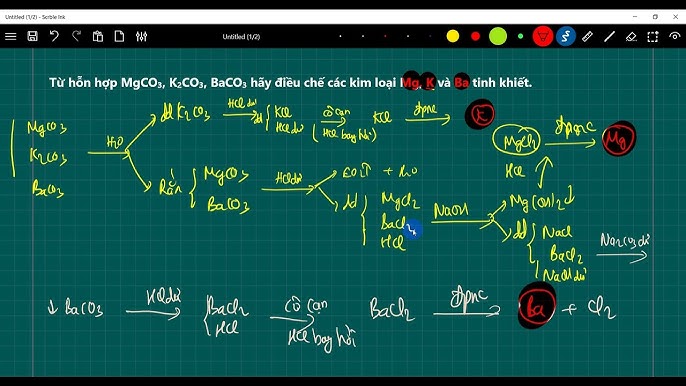 Untitled (1/2) - Scrble Ink
Untitled (1/2)
Từ hỗn hợp MgCO₃, K₂CO₃, BaCO₃ hãy điều chế các kim loại Mg, K và Ba tinh khiết.
MgCO₃
K₂CO₃
BaCO₃
H₂O
dd K₂CO₃
HCl dư
dd KCl
HCl dư
cô cạn
(HCl bay hơi)
KCl
đpnc
K
Rắn
MgCO₃
BaCO₃
HCl dư
CO₂↑ + H₂O
dd
MgCl₂
BaCl₂
HCl
NaOH
Mg(OH)₂↓
HCl
MgCl₂
đpnc
Mg
dd
NaCl
BaCl₂
NaOH dư
Na₂CO₃ dư
↓ BaCO₃
HCl dư
BaCl₂
HCl
cô cạn
HCl bay hơi
BaCl₂
đpnc
Ba + Cl₂